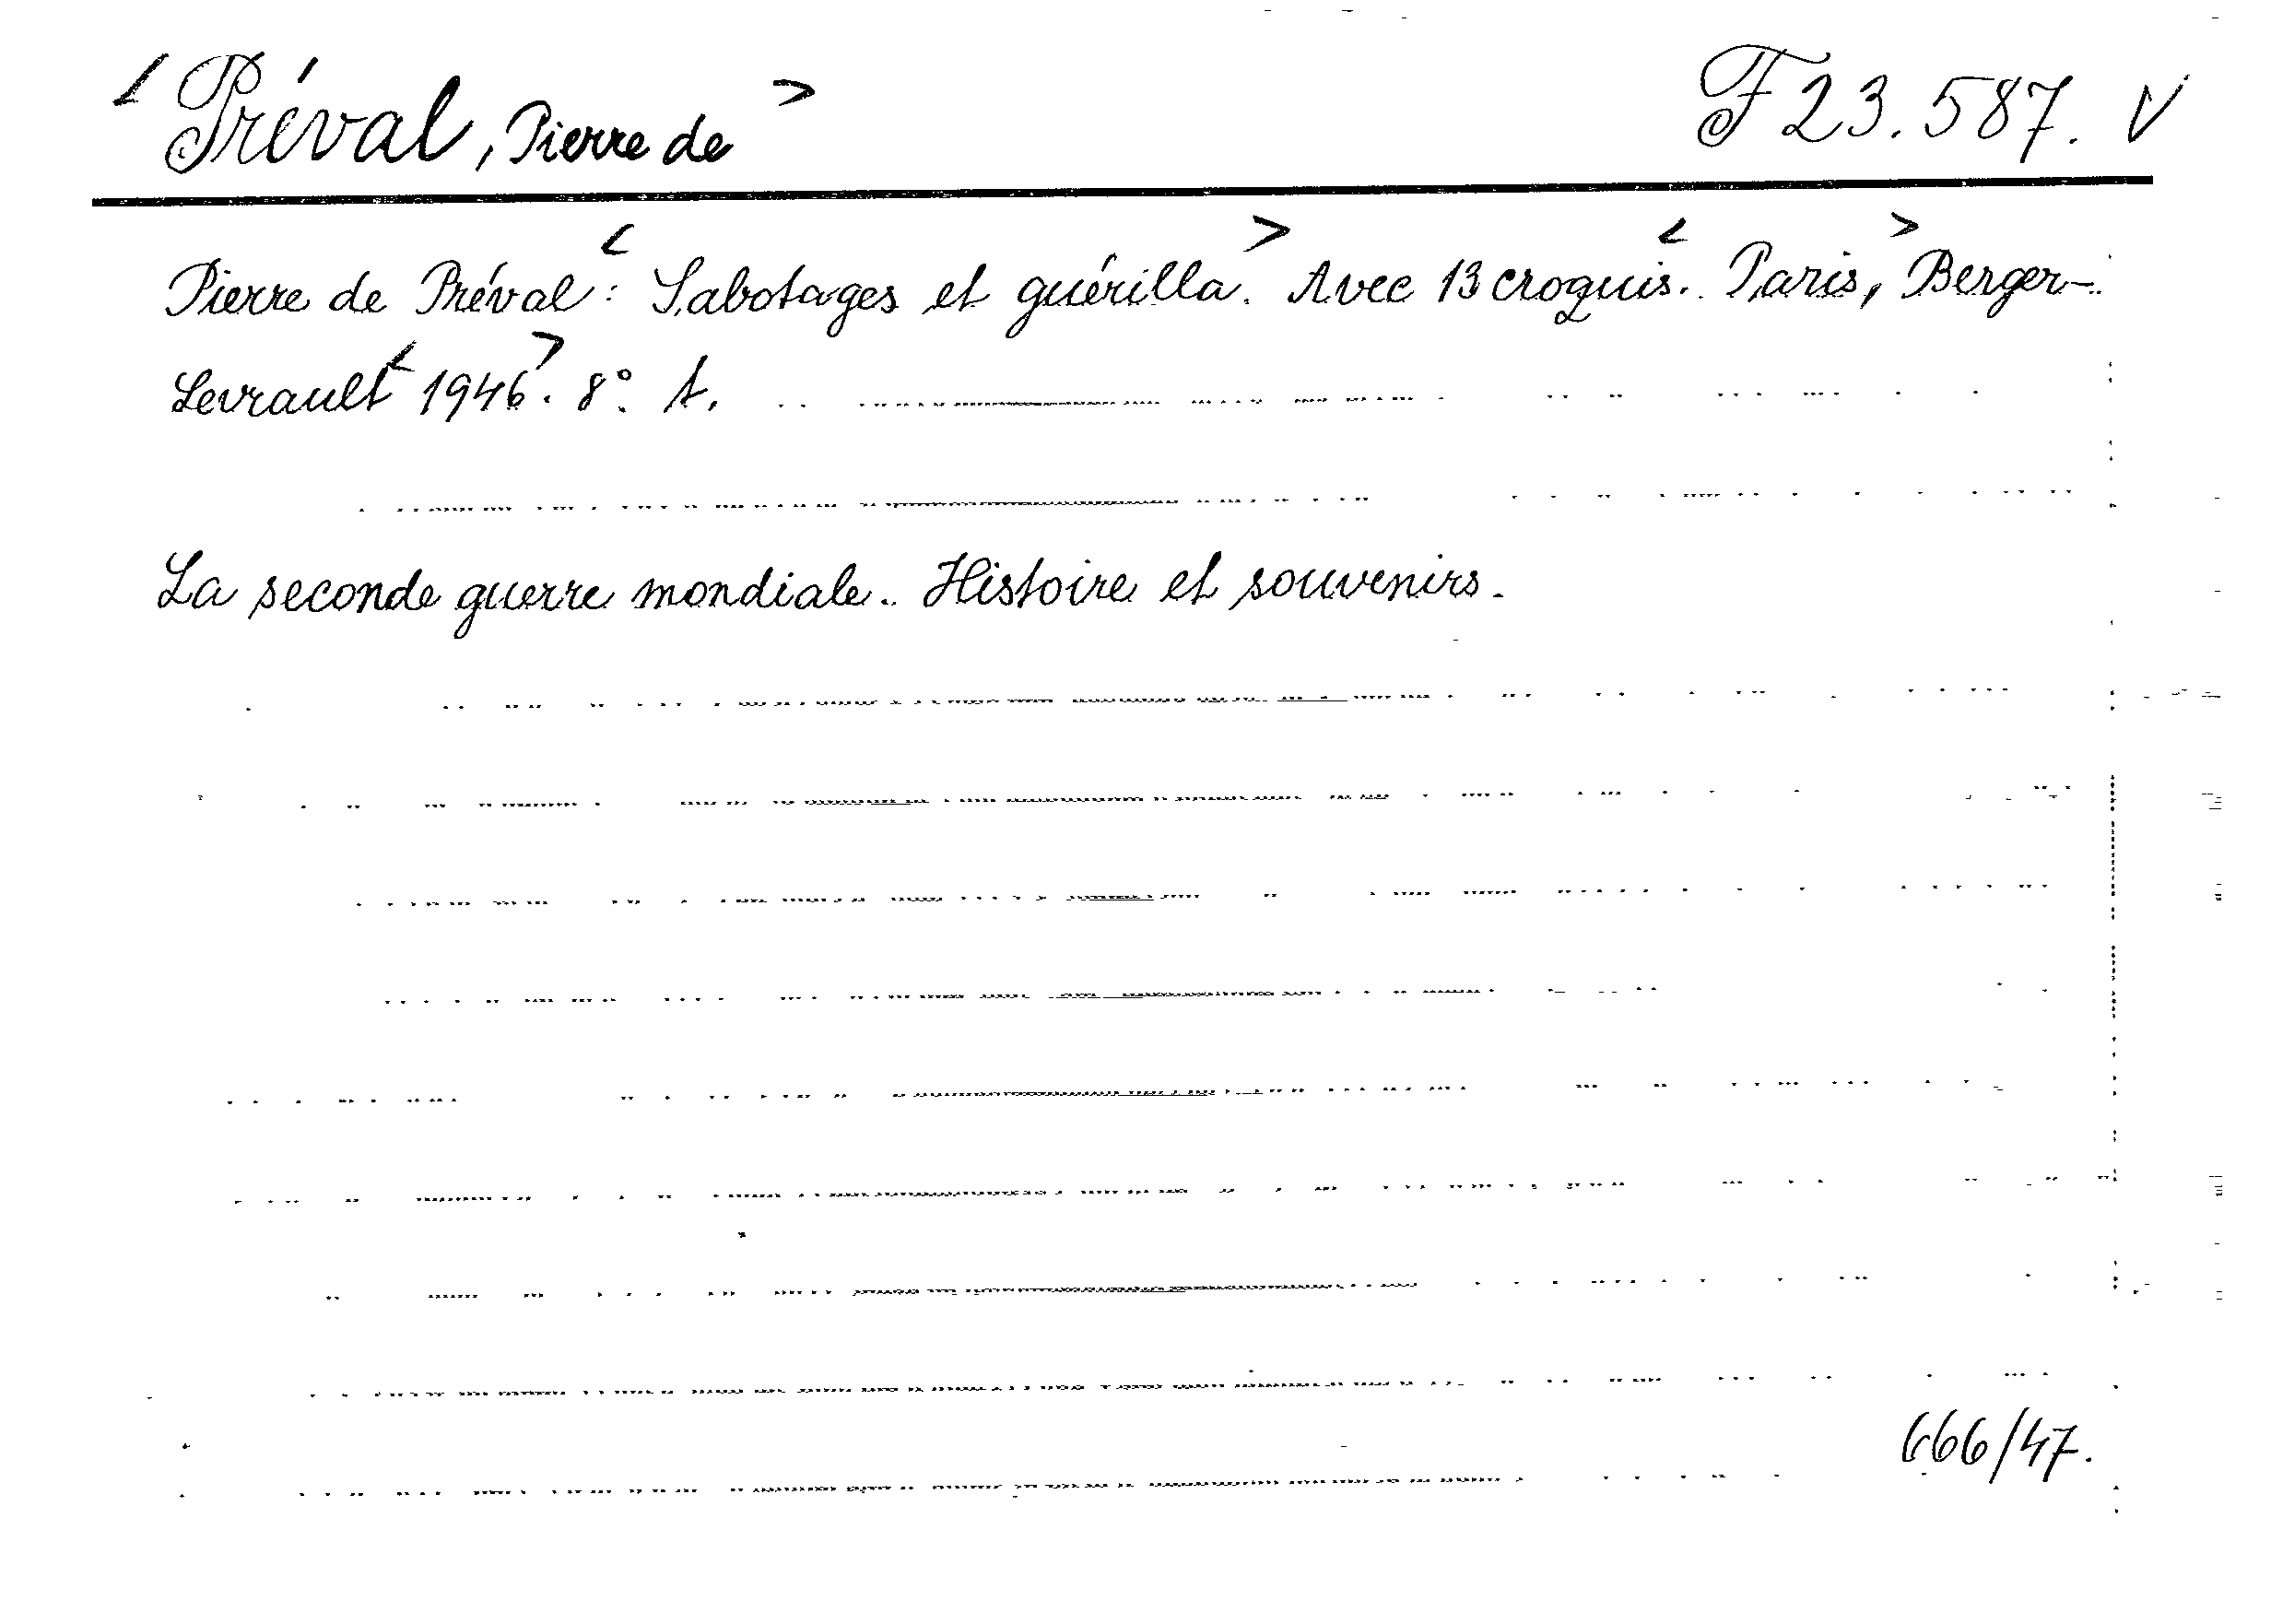 <Préval, Pierre de> F 23.587. V
Pierre de Préval: <Sabotages et guérilla>. Avec 13 croquis. <Paris>, Berger-
Levrault <1946>. 8°. A.
La seconde guerre mondiale. Histoire et souvenirs.
666/47.